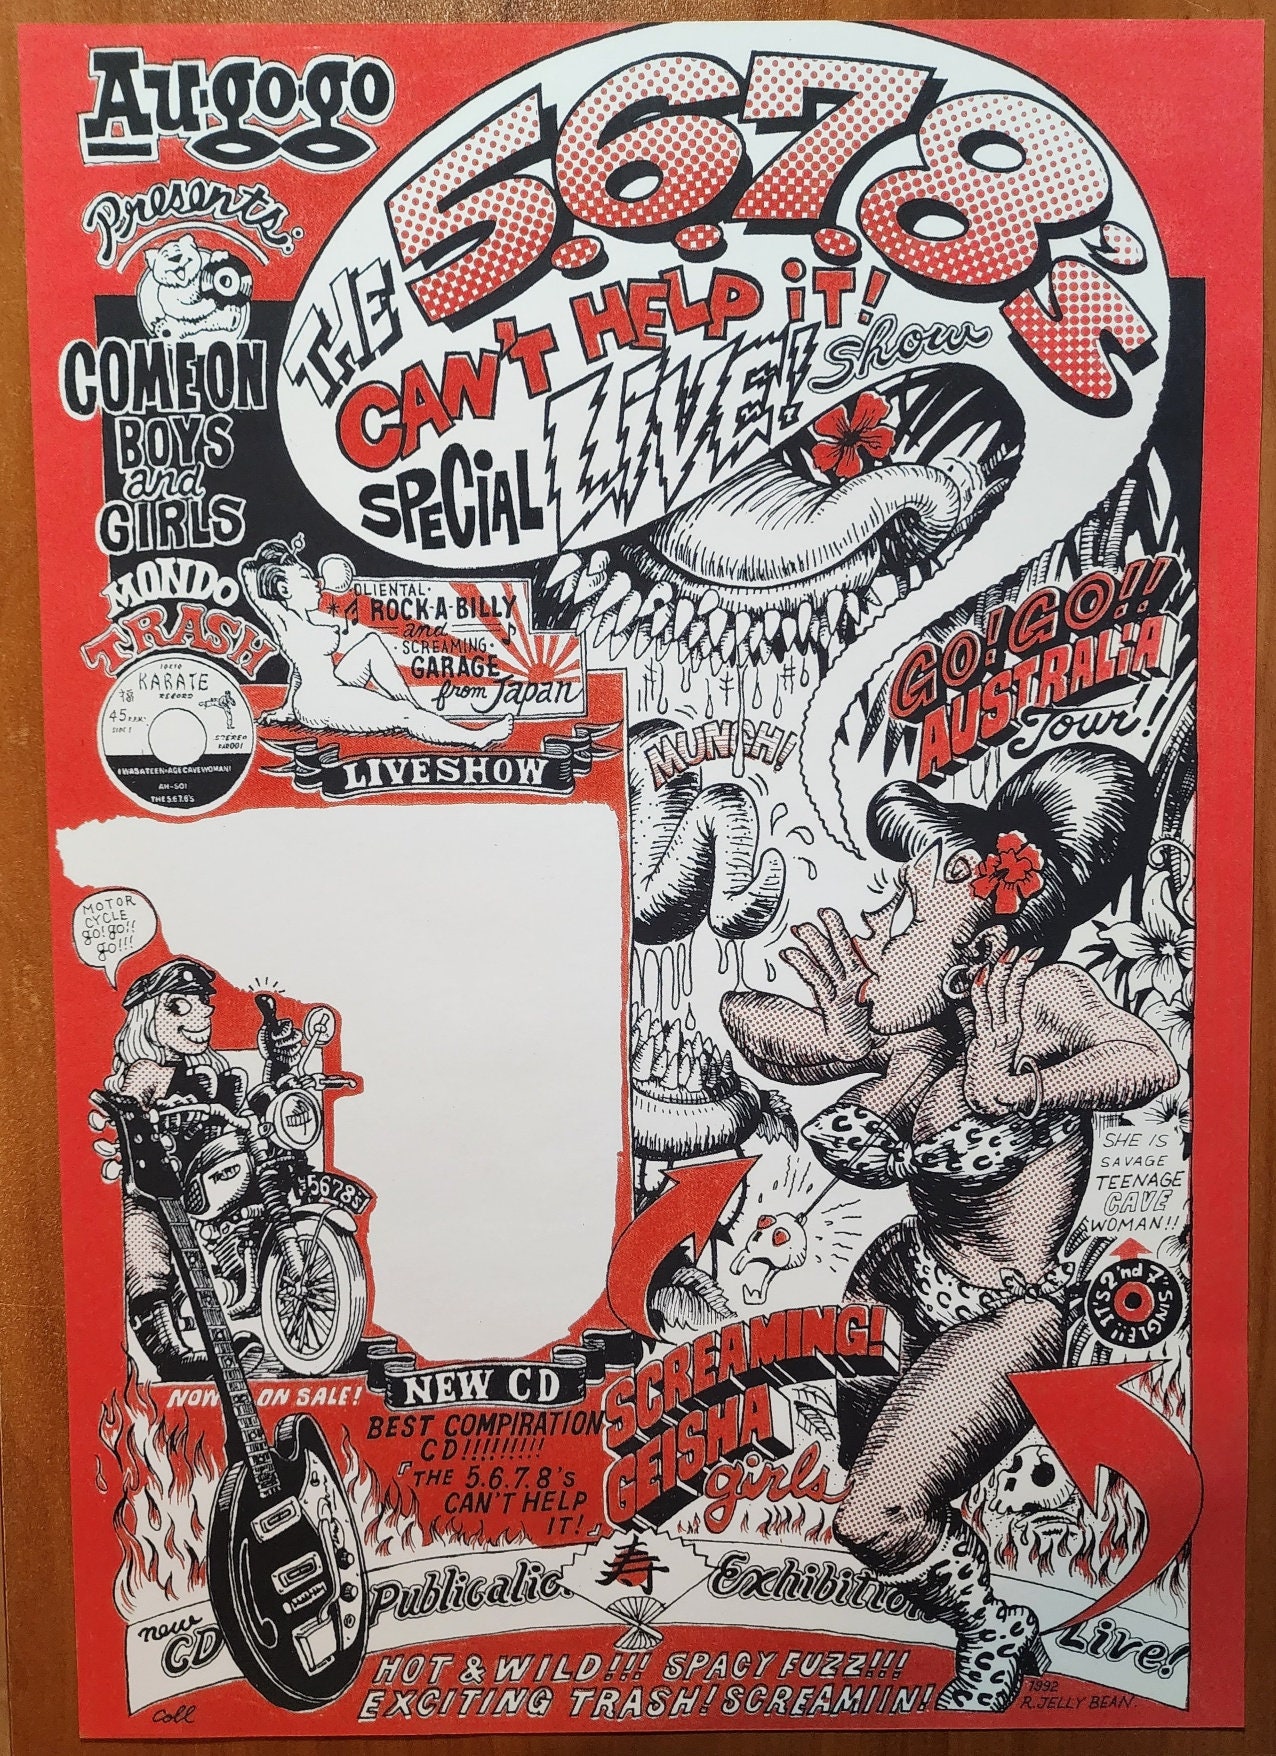 Au·go·go
Presents:
COME ON
BOYS
and
GIRLS
MONDO
TRASH
THE
5.6.7.8's
CAN'T HELP iT!
SPECiAL LiVE! Show
OLIENTAL·
ROCK·A·BILLY
and
·SCREAMING·
GARAGE
from Japan
TOKYO
KARATE
RECORD
45 R.P.M.
SIDE 1
STEREO
I WAS A TEEN·AGE CAVEWOMAN!
AH-SO!
THE 5.6.7.8'S
LIVE SHOW
GO! GO!!
AUSTRALiA
Tour!
MUNCH!
MOTOR
CYCLE
go!go!!
go!!!
5678
SHE IS
SAVAGE
TEENAGE
CAVE
WOMAN!!
IT'S 2'nd 7" SINGLE!!
SCREAMING!
GEISHA
girls
NOW ON SALE!
NEW CD
BEST COMPIRATION
CD!!!!!!!!!
「THE 5.6.7.8's
CAN'T HELP
IT!」
寿
new
CD
Publicatio
Exhibition
Live!
HOT & WILD!!! SPACY FUZZ!!!
EXCITING TRASH! SCREAMIIN!
Coll
1992
R.JELLY BEAN.